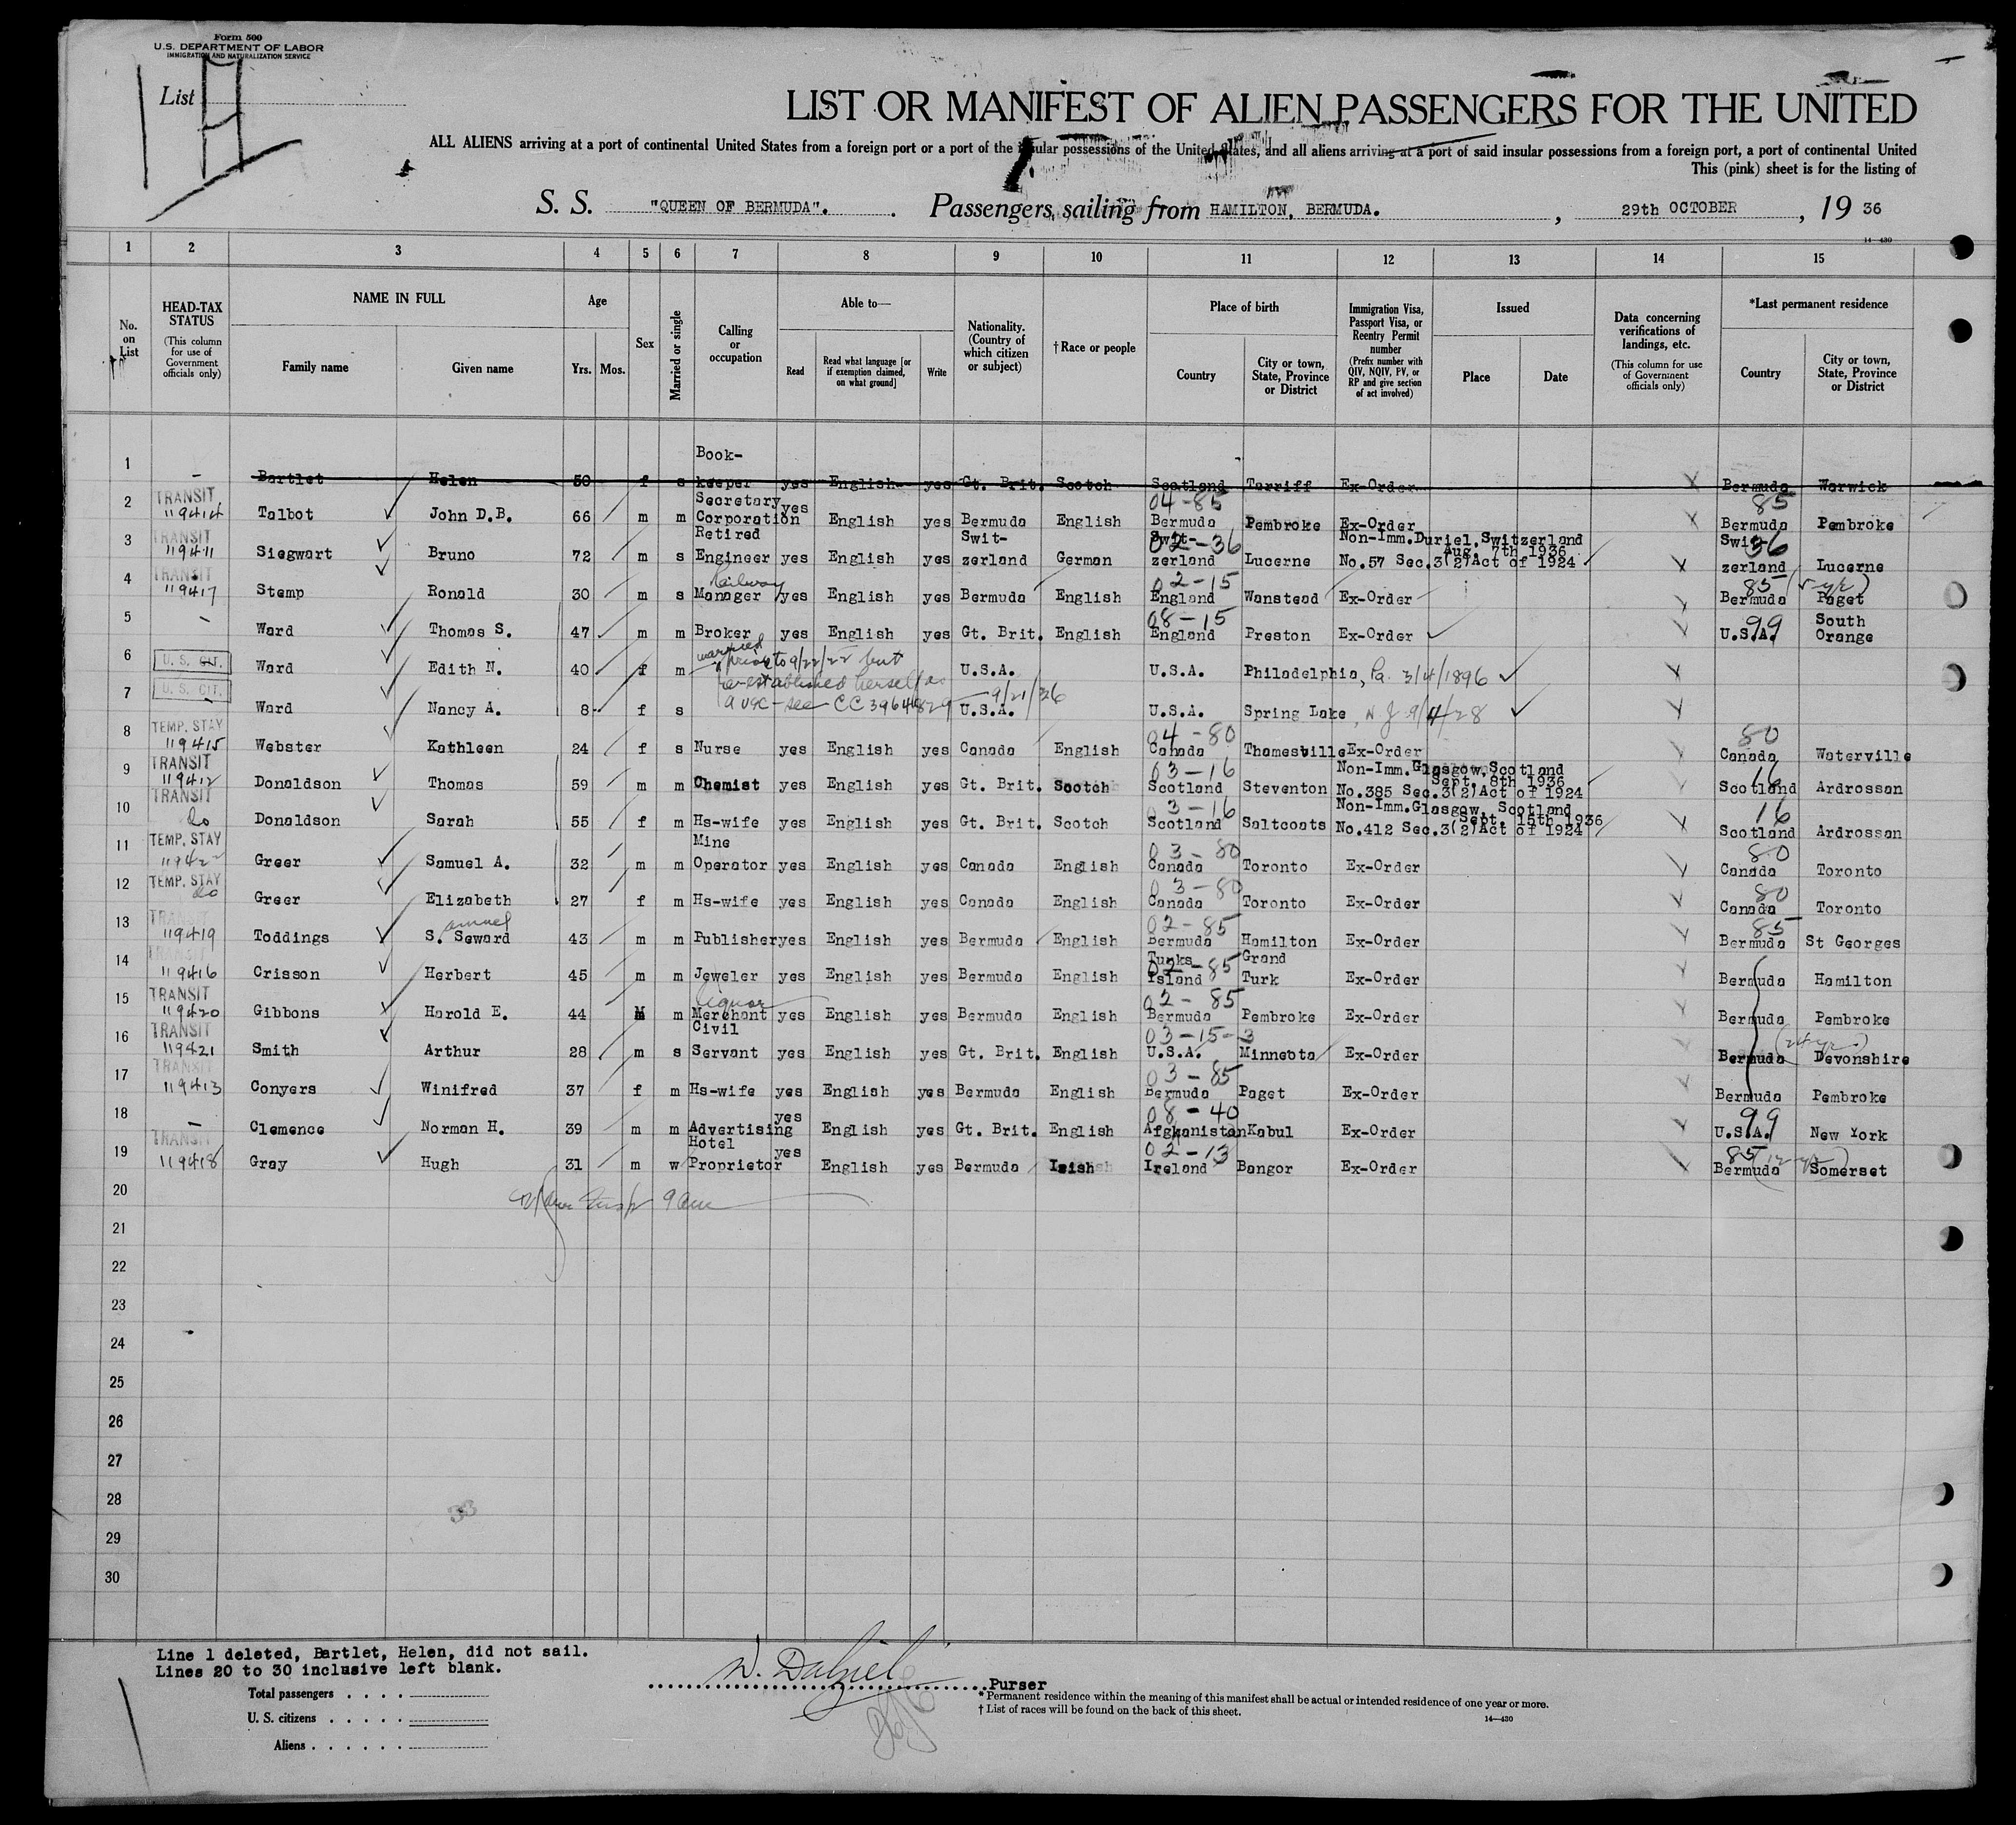 Form 500
U.S. DEPARTMENT OF LABOR
IMMIGRATION AND NATURALIZATION SERVICE
List
LIST OR MANIFEST OF ALIEN PASSENGERS FOR THE UNITED
ALL ALIENS arriving at a port of continental United States from a foreign port or a port of the insular possessions of the United States, and all aliens arriving at a port of said insular possessions from a foreign port, a port of continental United
This (pink) sheet is for the listing of
S. S. "QUEEN OF BERMUDA". Passengers sailing from HAMILTON, BERMUDA. , 29th OCTOBER , 19 36
14—430
1 2 3 4 5 6 7 8 9 10 11 12 13 14 15
No. on List
HEAD-TAX STATUS (This column for use of Government officials only)
NAME IN FULL Family name Given name
Age Yrs. Mos.
Sex
Married or single
Calling or occupation
Able to— Read Read what language [or if exemption claimed, on what ground] Write
Nationality. (Country of which citizen or subject)
†Race or people
Place of birth Country City or town, State, Province or District
Immigration Visa, Passport Visa, or Reentry Permit number (Prefix number with QIV, NQIV, PV, or RP and give section of act involved)
Issued Place Date
Data concerning verifications of landings, etc. (This column for use of Government officials only)
*Last permanent residence Country City or town, State, Province or District
1 - Bartlet Helen 50 f s Book-keeper yes English yes Gt. Brit. Scotch Scotland Turriff Ex-Order Bermuda Warwick
2 TRANSIT 119414 Talbot John D.B. 66 m m Secretary Corporation yes English yes Bermuda English 04-85 Bermuda Pembroke Ex-Order 85 Bermuda Pembroke
3 TRANSIT 119411 Siegwart Bruno 72 m s Retired Engineer yes English yes Swit-zerland German 02-36 Swit-zerland Lucerne Non-Imm. Duriel, Switzerland No.57 Sec.3(2)Act of 1924 Aug. 7th 1936 36 Swit-zerland Lucerne
4 TRANSIT 119417 Stemp Ronald 30 m s Railway Manager yes English yes Bermuda English 02-15 England Wanstead Ex-Order 85 (5 yr) Bermuda Paget
5 - Ward Thomas S. 47 m m Broker yes English yes Gt. Brit. English 08-15 England Preston Ex-Order 99 U.S.A. South Orange
6 U. S. CIT. Ward Edith N. 40 f m married prior to 9/22/22 but U.S.A. U.S.A. Philadelphia, Pa. 3/4/1896
reestablished herself as
7 U. S. CIT. Ward Nancy A. 8 f s a USC - see CC 3964829 - 9/21/36 U.S.A. U.S.A. Spring Lake, N J 9/4/28
8 TEMP. STAY 119415 Webster Kathleen 24 f s Nurse yes English yes Canada English 04-80 Canada Thamesville Ex-Order 80 Canada Waterville
9 TRANSIT 119412 Donaldson Thomas 59 m m Chemist yes English yes Gt. Brit. Scotch 03-16 Scotland Steventon Non-Imm. Glasgow, Scotland No.385 Sec.3(2)Act of 1924 Sept. 8th 1936 16 Scotland Ardrossan
10 TRANSIT do Donaldson Sarah 55 f m Hs-wife yes English yes Gt. Brit. Scotch 03-16 Scotland Saltcoats Non-Imm. Glasgow, Scotland No.412 Sec.3(2)Act of 1924 Sept. 15th 1936 16 Scotland Ardrossan
11 TEMP. STAY 119422 Greer Samuel A. 32 m m Mine Operator yes English yes Canada English 03-80 Canada Toronto Ex-Order 80 Canada Toronto
12 TEMP. STAY do Greer Elizabeth 27 f m Hs-wife yes English yes Canada English 03-80 Canada Toronto Ex-Order 80 Canada Toronto
13 TRANSIT 119419 Toddings S.amuel Seward 43 m m Publisher yes English yes Bermuda English 02-85 Bermuda Hamilton Ex-Order 85 Bermuda St Georges
14 TRANSIT 119416 Crisson Herbert 45 m m Jeweler yes English yes Bermuda English 02-85 Turks Island Grand Turk Ex-Order Bermuda Hamilton
15 TRANSIT 119420 Gibbons Harold E. 44 M m liquor Merchant yes English yes Bermuda English 02-85 Bermuda Pembroke Ex-Order Bermuda Pembroke
16 TRANSIT 119421 Smith Arthur 28 m s Civil Servant yes English yes Gt. Brit. English 03-15-3 U.S.A. Minneota Ex-Order Bermuda Devonshire
17 TRANSIT 119413 Conyers Winifred 37 f m Hs-wife yes English yes Bermuda English 03-85 Bermuda Paget Ex-Order Bermuda Pembroke
18 - Clemence Norman H. 39 m m Advertising yes English yes Gt. Brit. English 08-40 Afghanistan Kabul Ex-Order 99 U.S.A. New York
19 TRANSIT 119418 Gray Hugh 31 m w Hotel Proprietor yes English yes Bermuda Irish 02-13 Ireland Bangor Ex-Order 85 Bermuda Somerset
20
21
22
23
24
25
26
27
28
29
30
33
Line 1 deleted, Bartlet, Helen, did not sail.
Lines 20 to 30 inclusive left blank.
Total passengers . . . .
U. S. citizens . . . . .
Aliens . . . . . .
W. Dalziel Purser
* Permanent residence within the meaning of this manifest shall be actual or intended residence of one year or more.
† List of races will be found on the back of this sheet.
14—430